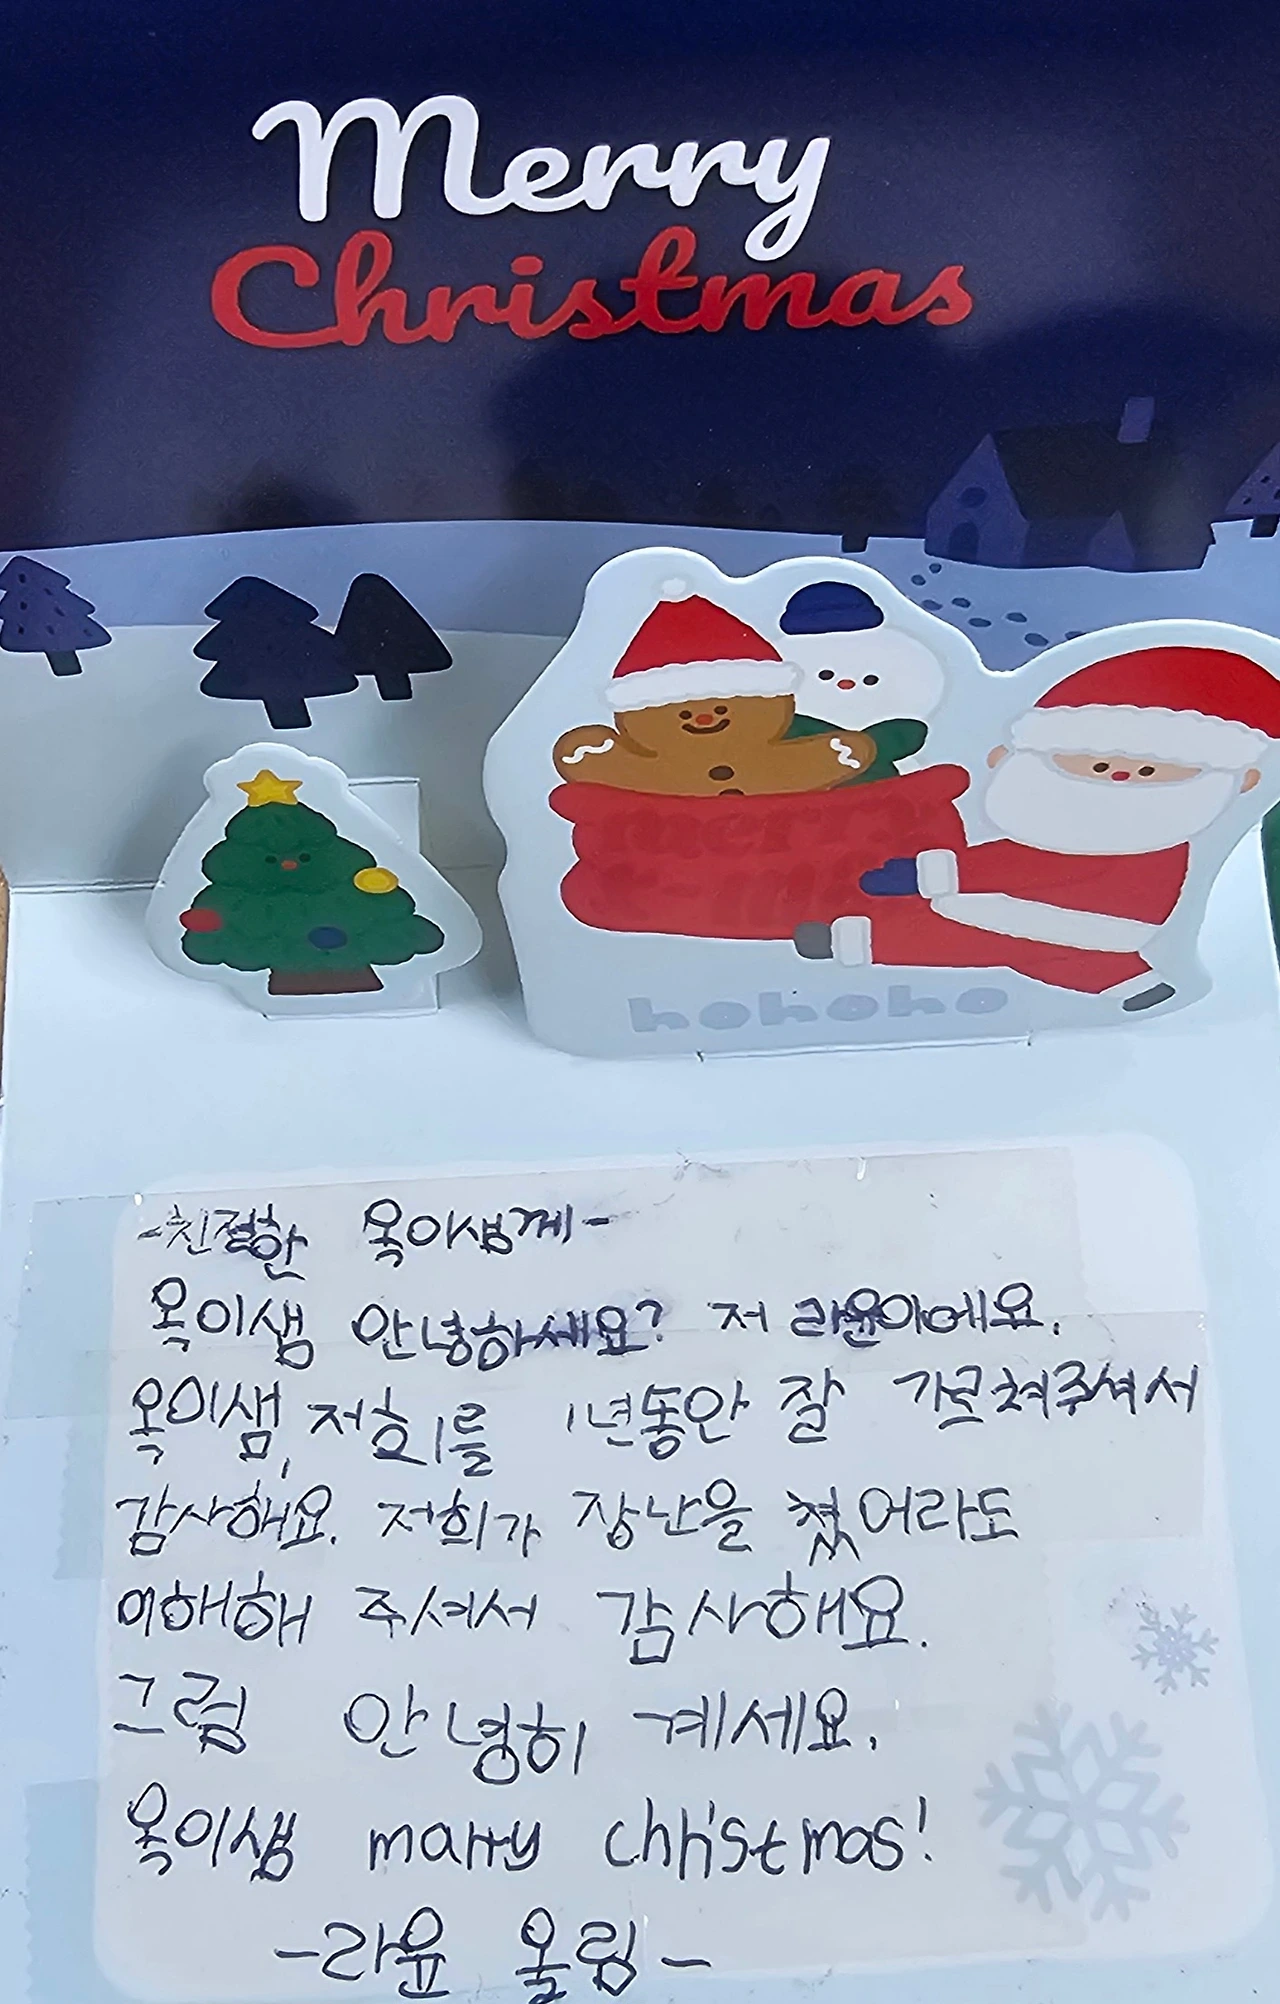 Merry
Christmas
merry
x-mas
hohoho
-친절한 옥이샘께-
옥이샘 안녕하세요? 저 라윤이에요.
옥이샘, 저희를 1년동안 잘 가르쳐주셔서
감사해요. 저희가 장난을 쳤어라도
이해해 주셔서 감사해요.
그럼 안녕히 계세요.
옥이샘 marry christmas!
-라윤 올림-